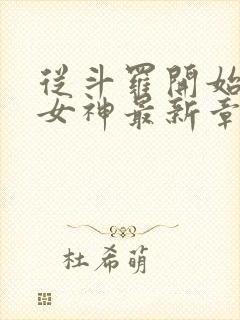 從斗羅開始
女神最新章
杜希萌